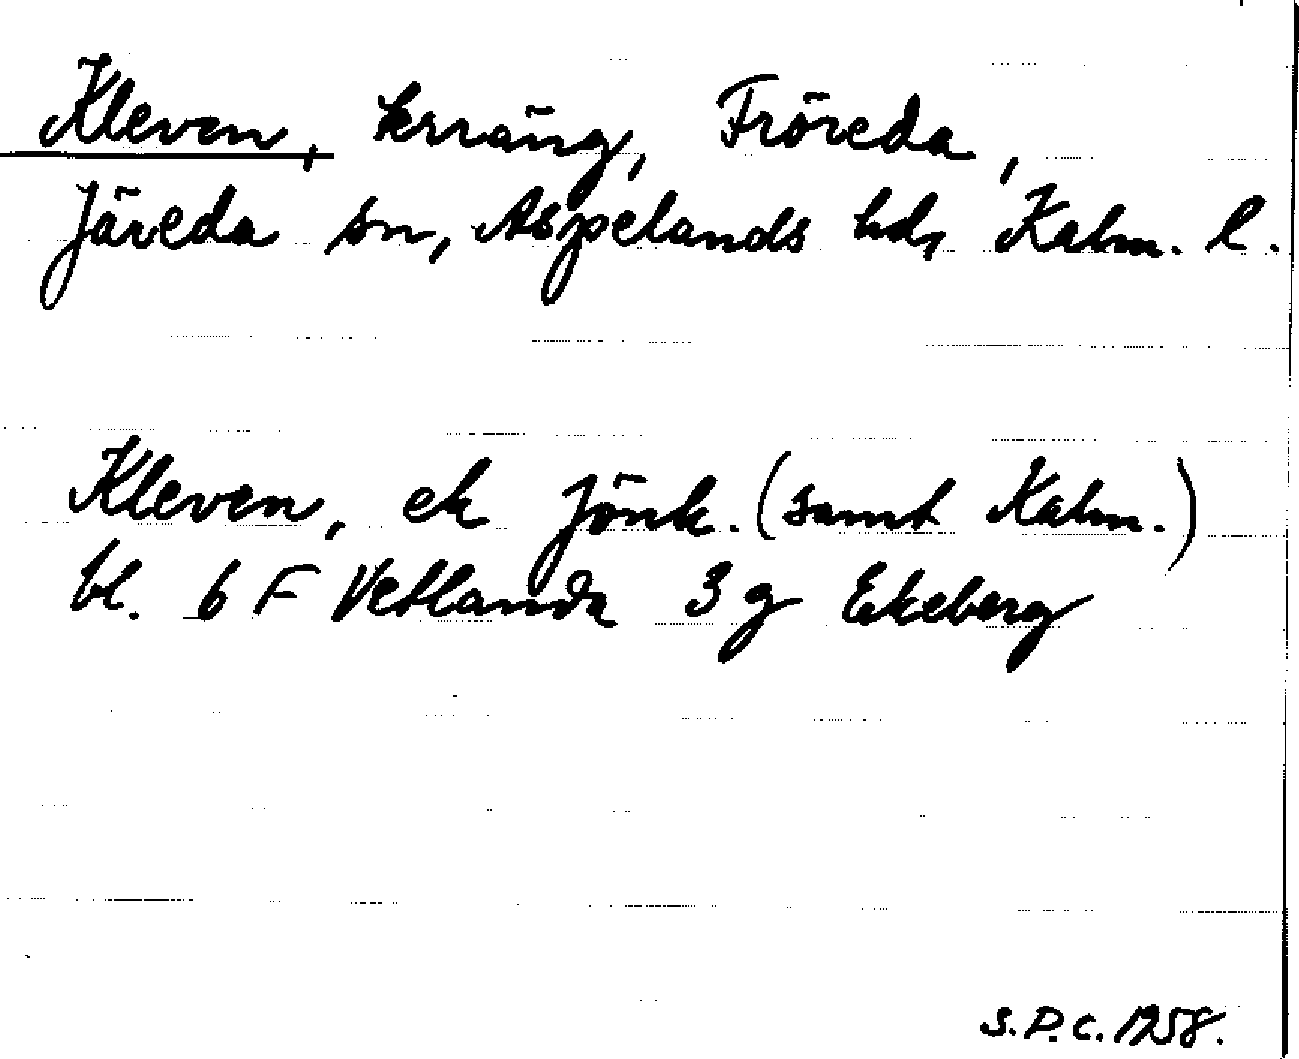 Kleven, terräng, Fröreda,
Järeda sn, Aspelands hd, Kalm. l.
Kleven, ek Jönk. (samt Kalm.)
bl. 6 F Vetlanda 3 g Ekeberg
S.P.C. 1958.